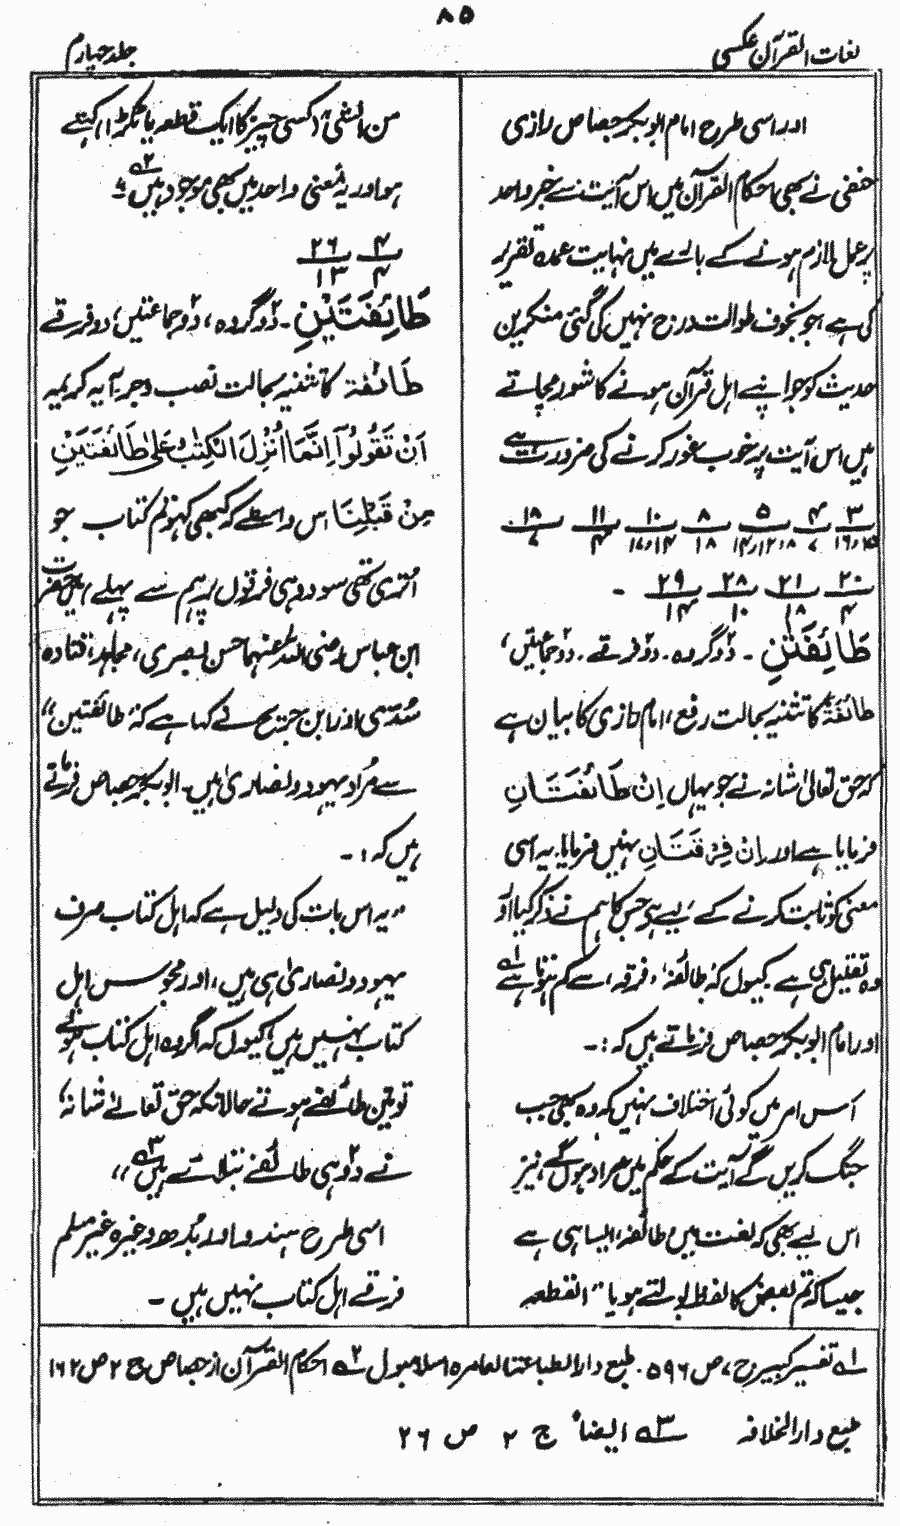 ٨٥
لغات القرآن عکسی
جلد چہارم
اور اسی طرح امام ابوبکر جصاص رازی
حنفی نے بھی احکام القرآن میں اس آیت سے خبر واحد
پر عمل لازم ہونے کے بارے میں نہایت عمدہ تقریر
کی ہے جو بخوف طوالت درج نہیں کی گئی منکرین
حدیث کو جو اپنے اہل قرآن ہونے کا شور مچاتے
ہیں اس آیت پر خوب غور کرنے کی ضرورت ہے
٣ ٤ ٥ ٨ ١٠ ١١ ١٨
٢٠ ٢١ ٢٨ ٢٩ -
٤ ١٨ ١٠ ١٤
طَائِفَتٰنِ - دو گروہ. دو فرقے. دو جماعتیں،
طائفۃ کا تثنیہ بحالت رفع، امام رازی کا بیان ہے
کہ حق تعالیٰ شانہ نے جو یہاں اِنْ طَائِفَتَانِ
فرمایا ہے اور اِنْ فِرْقَتَانِ نہیں فرمایا. یہ اسی
معنی کو ثابت کرنے کے لیے ہی جس کا ہم نے ذکر کیا اور
وہ تقلیل ہی ہے کیوں کہ طائفہ، فرقہ، سے کم ہوتا ہے ؎١
اور امام ابوبکر جصاص فرماتے ہیں کہ :-
اس امر میں کوئی اختلاف نہیں کہ وہ بھی جب
جنگ کریں گے آیت کے حکم میں مراد ہوں گے، نیز
اس لیے بھی کہ لغت میں طائفہ، ایسا ہی ہے
جیسا کہ تم لبعض کا لفظ بولتے ہو یا "القطعہ
من الشیٔ" (کسی چیز کا ایک قطعہ یا ٹکڑا) کہتے
ہو اور یہ معنی واحد میں بھی موجود ہیں ؎٢ -
٤ ٢٦
٤ ١٣
طَائِفَتَيْنِ - دو گروہ، دو جماعتیں، دو فرقے
طَائفۃ کا تثنیہ بحالت نصب و جر، آیہ کریمہ
اَنْ تَقُوْلُوْآ اِنَّمَا اُنْزِلَ الْكِتٰبُ عَلٰى طَائِفَتَيْنِ
مِنْ قَبْلِنَا اس واسطے کہ کبھی کہو تم کتاب جو
اتری تھی سو دو ہی فرقوں پر ہم سے پہلے، میں حضرت
ابن عباس رضی اللہ عنہما حسن بصری، مجاہد، قتادہ
سُدّی اور ابن جریج نے کہا ہے کہ "طائفتین"
سے مراد یہود و نصاریٰ ہیں۔ ابوبکر جصاص فرماتے
ہیں کہ :-
"یہ اس بات کی دلیل ہے کہ اہل کتاب صرف
یہود و نصاریٰ ہی ہیں، اور مجوس اہل
کتاب نہیں ہیں، کیوں کہ اگر وہ اہل کتاب ہوتے
تو تین طائفے ہوتے حالانکہ حق تعالےٰ شانہ
نے دو ہی طائفے بتلائے ہیں ؎٣ "
اسی طرح ہندو اور بدھ وغیرہ غیر مسلم
فرقے اہل کتاب نہیں ہیں -
؎١ تفسیر کبیر ج، ص ٥٩٦. طبع دار الطباعۃ العامرہ اسلامبول ؎٢ احکام القرآن از جصاص ج ٢ ص ١٦٢
طبع دار الخلافہ ؎٣ ایضاً ج ٢ ص ٢٦